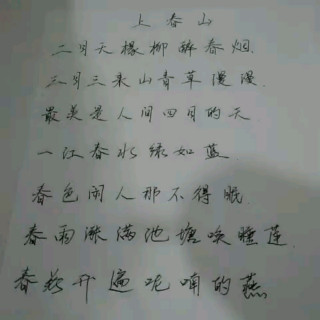 上春山
二月天楊柳醉春烟
三月三来山青草漫漫
最美是人间四月的天
一江春水绿如蓝
春色闹人那不得眠
春雨涨满池塘唤睡莲
春燕开遍呢喃的燕